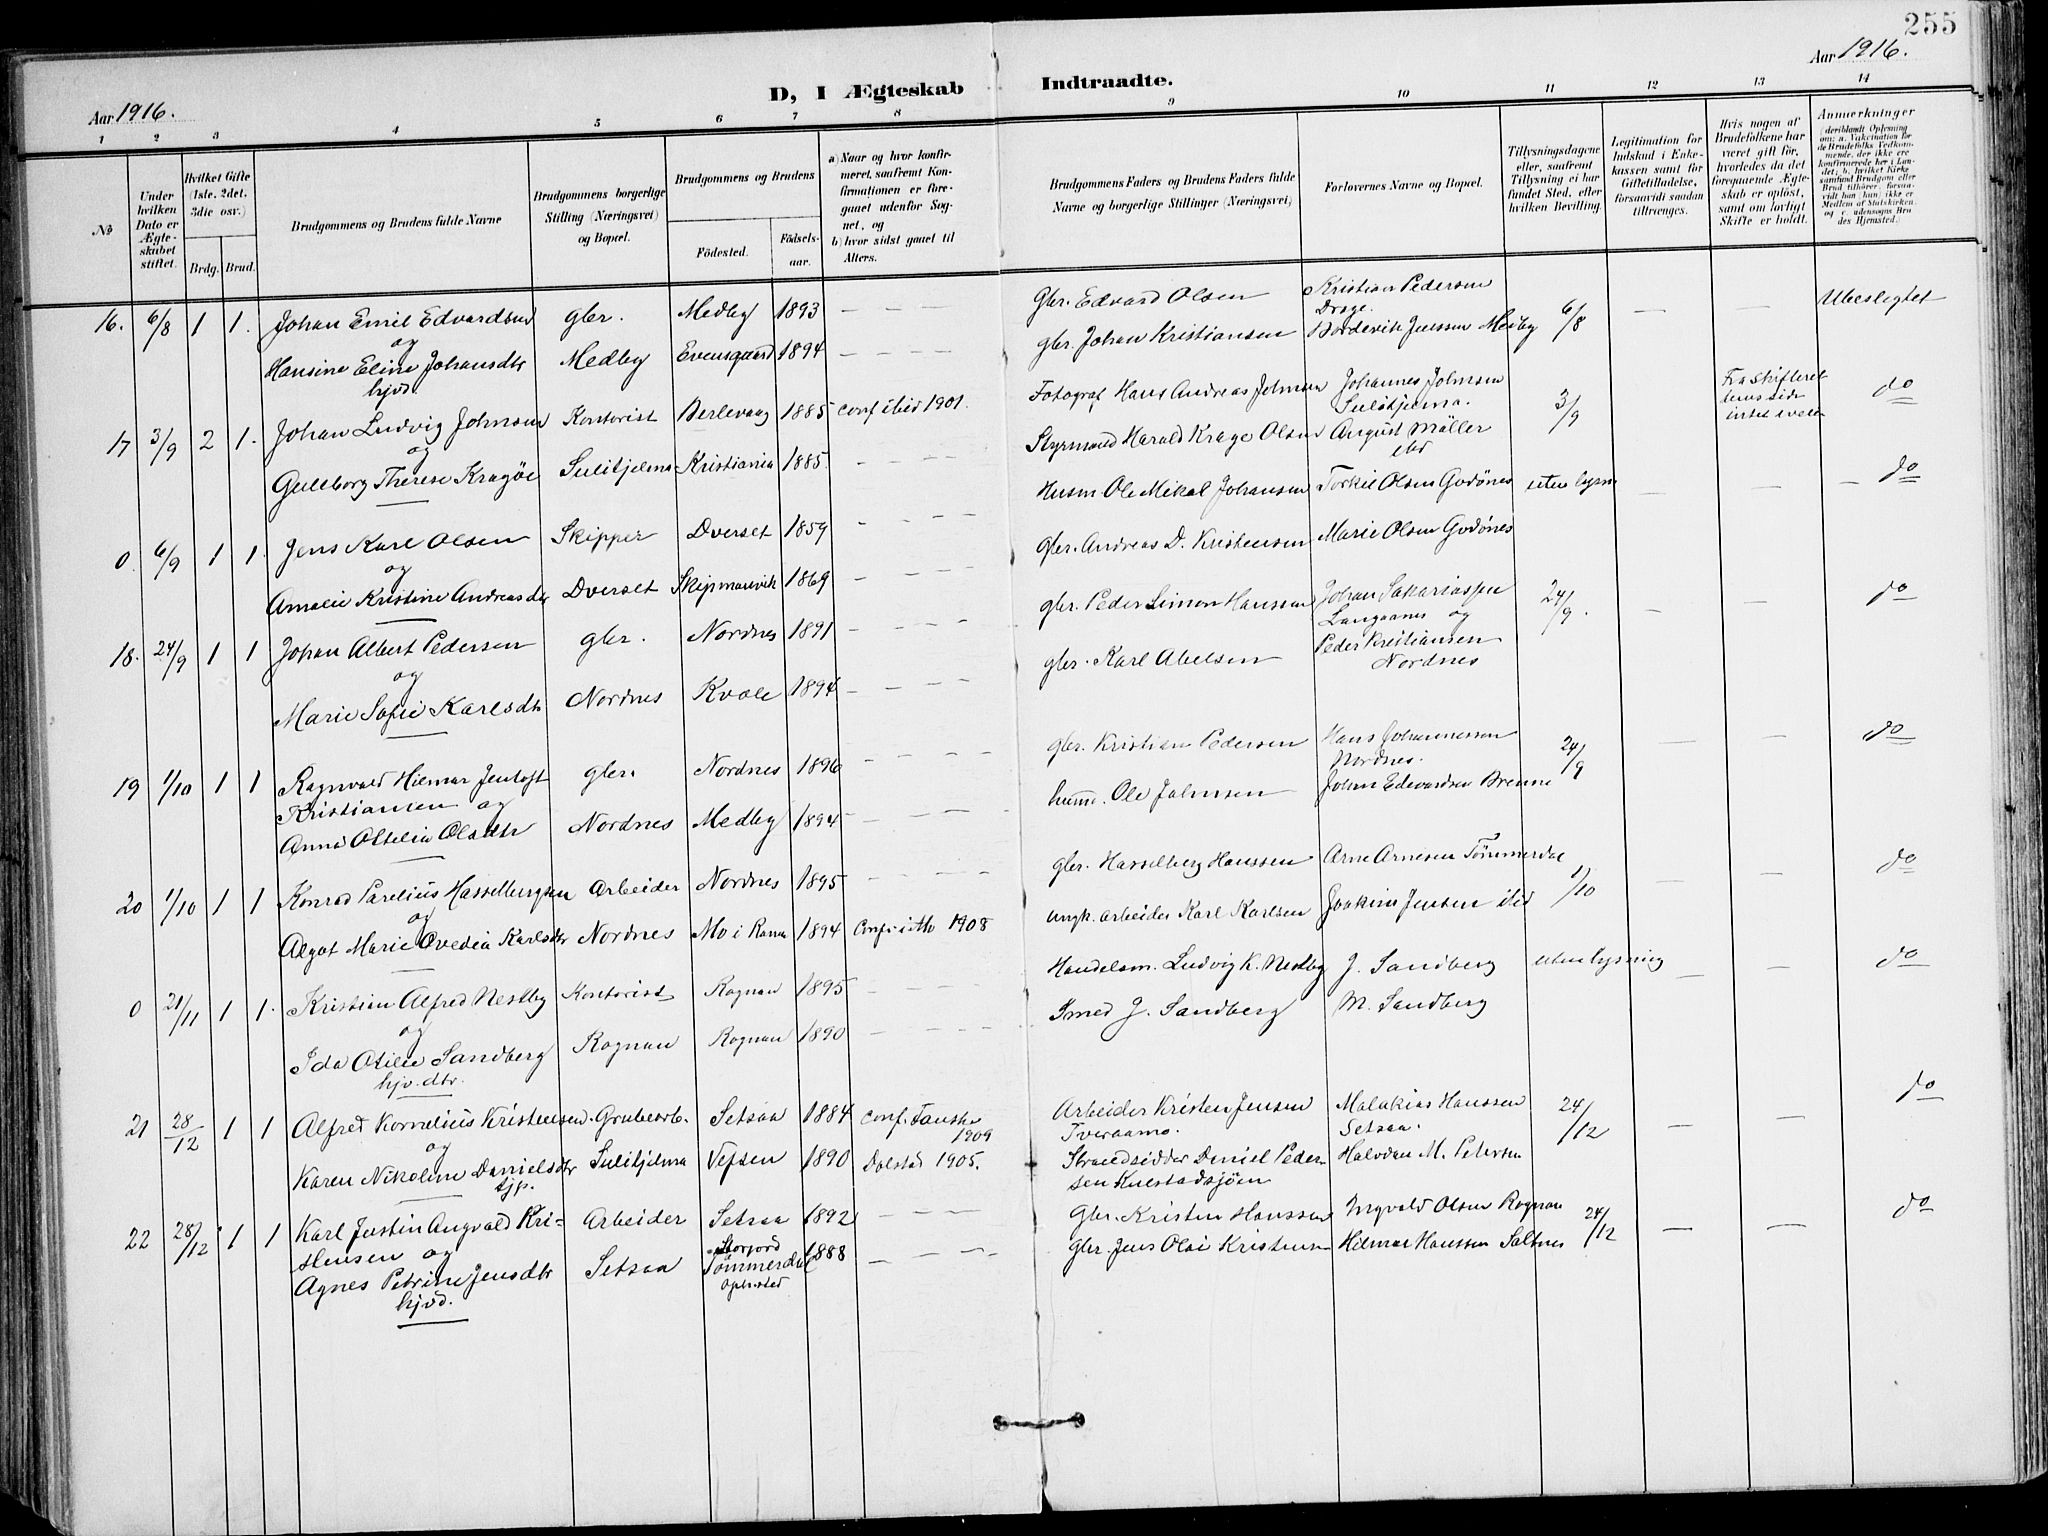 255
Aar 1916.
Aar 1916.
D, I Ægteskab Indtraadte.
1 2 3 4 5 6 7 8 9 10 11 12 13 14
No
Under hvilken Dato er Ægteskabet stiftet.
Hvilket Gifte (1ste, 2det, 3die osv.)
Brdg. Brud.
Brudgommens og Brudens fulde Navne
Brudgommens borgerlige Stilling (Næringsvei) og Bopæl.
Brudgommens og Brudens
Födested.
Födsels-aar.
a) Naar og hvor konfirmeret, saafremt Konfirmationen er foregaaet udenfor Sognet, og
b) hvor sidst gaaet til Alters.
Brudgommens Faders og Brudens Faders fulde Navne og borgerlige Stillinger (Næringsvei)
Forlovernes Navne og Bopæl.
Tillysningsdagene eller, saafremt Tillysning ei har fundet Sted, efter hvilken Bevilling.
Legitimation for Indskud i Enkekassen samt for Giftetilladelse, forsaavidt saadan tiltrænges.
Hvis nogen af Brudefolkene har været gift för, hvorledes da det foregaaende Ægteskab er oplöst, samt om lovligt Skifte er holdt.
Anmerkninger
(deriblandt Oplysning om: a. Vakcination for de Brudefolks Vedkommende, der ikke ere konfirmerede her i Landet; b. hvilket Kirkesamfund Brudgom eller Brud tilhörer, forsaavidt han (hun) ikke er Medlem af Statskirken, og c. udensogns Brudes Hjemsted.
16. 6/8 1 1. Johan Emil Edvardsen gbr. Medby 1893 — — — Gbr. Edvard Olsen Kristian Pedersen 6/8 — — Ubeslegtet
og
Hansine Eline Johansdtr Medby Evensgaard 1894 — — — gbr. Johan Kristiansen Jenssen Medby
hjvd.
17 3/9 2 1. Johan Ludvig Johnsen Kontorist Berlevaag 1885 conf ibid 1901. Fotograf Hans Andreas Johnsen Johannes Johnsen Sulitjelma. 3/9 Fra Skifteret do
og
Gulborg Therese Kragöe Sulitjelma Kristiania 1885. — — — Styrmand Harald Krage Olsen August Möller ibd
0. 6/9 1 1. Jens Karl Olsen Skipper Dverset 1859 — — — Husm Ole Mikal Johansen Torkil Olsen Godönes uten lysn — — — do
og
Amalie Kristine Andreasdtr Dverset Skipmansvik 1869 — — — gbr. Andreas D. Kristensen Marie Olsen Godönes
18. 24/9 1 1 Johan Albert Pedersen gbr. Nordnes 1891 — — — gbr. Peder Simon Hanssen Johan Sakariassen Langaanes og 24/9. — — do
og
Marie Sofie Karlsdtr Nordnes Kvale 1894 — — — gbr. Karl Abelsen Peder Kristiansen Nordnes
19 1/10 1 1 Ragnvald Hilmar Jentoft gbr. Nordnes 1896 — — — gbr. Kristian Pedersen Hans Johannessen Nordnes. 24/9 — — do
Kristiansen og
Anna Ottelia Olsdtr Nordnes Medby 1894 — — — husm. Ole Johnsen Johan Edvardsen Brenne
20 1/10 1 1 Konrad Parelius Hasselbergsen Arbeider Nordnes 1895 — — — gbr. Hasselberg Hanssen Arne Arnesen Tömmerdal 1/10 — — do
og
Algot Marie Ovedia Karlsdtr Nordnes Mo i Rana 1894 1908 ungk. arbeider Karl Karlsen Joakim Jensen ibid
0 21/11 1 1. Kristian Alfred Nestby Kontorist Rognan 1895 — — — Handelsm. Ludvig K. Nestby J. Sandberg uten lysning — — do
og
Ida Otilie Sandberg Rognan Rognan 1890 — — — Smed J. Sandberg M. Sandberg
hjv. dtr.
21 28/12 1 1 Alfred Kornelius Kristensen Grubearb. Setsaa 1884 conf. Fauske 1909 Arbeider Kristen Jensen Tveraamo. Malakias Hanssen Setsaa. 24/12 — — do
og
Karen Nikoline Danielsdtr Sulitjelma Vefsen 1890 Dolstad 1905. Strandsidder Daniel Pedersen Kulstadsjöen Halvdan M. Petersen
tjp.
22 28/12 1 1 Karl Justin Angvald Kri= Arbeider Setsaa 1892 — — — Gbr. Kristen Hanssen Ingvald Olsen Rognan 24/12 — — do
stensen og
Agnes Petrine Jensdtr Setsaa Storjord Tömmerdal opholdsted 1888 — — — gbr. Jens Olai Kristensen Hilmar Hanssen Saltnes
hjvd.